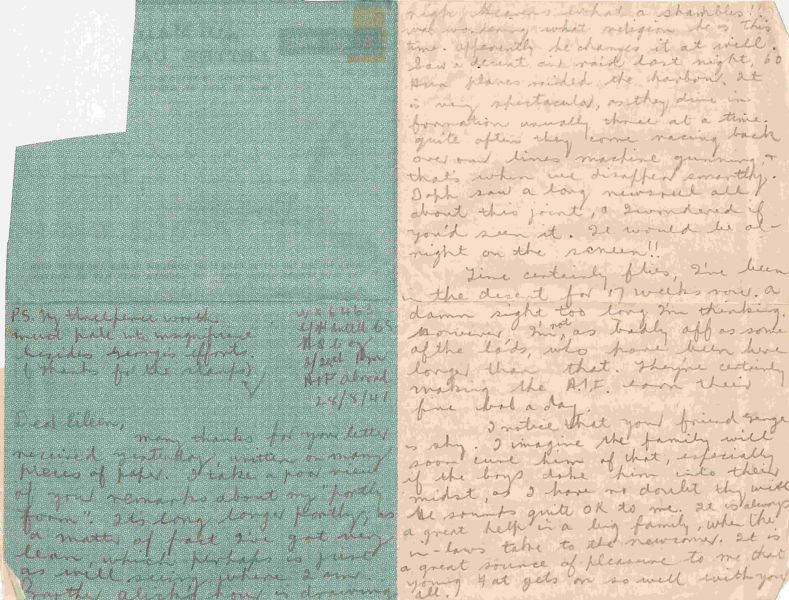 P.S. My threepence worth
must pale into insignificance
besides George's efforts.
(Thanks for the stamps)
WX6463
H.Q. Coy
A.I.F. abroad
28/8/41
Dear Eileen,
many thanks for your letter
received yesterday, written on many
pieces of paper. I take a poor view
of your remarks about my "portly
form". It's long longer portly, as
a matter of fact I've got very
lean, which perhaps is just
as well seeing where I am.
By the hour is drawing
nigh, Heavens what a shambles!!
was wondering what religion he is this
time. apparently he changes it at will.
Saw a decent air raid last night, 60
planes raided the harbour. It
is very spectacular, as they dive in
formation usually three at a time.
quite often they come racing back
over our lines machine gunning, &
that's when we disappear smartly.
Daph saw a long newsreel all
about this joint, & I wondered if
you'd seen it. It would be al-
right on the screen!!
Time certainly flies, I've been
in the desert for 17 weeks now. a
damn sight too long I'm thinking.
However I'm not as badly off as some
of the lads, who have been here
longer than that. They're certainly
making the A.I.F. earn their
five bob a day.
I notice that your friend George
is shy. I imagine the family will
soon cure him of that, especially
if the boys take him into their
midst, as I have no doubt they will
He sounds quite OK to me. It is always
a great help in a big family, when the
in-laws take to the newcomer. It is
a great source of pleasure to me that
young Pat gets on so well with you
all.